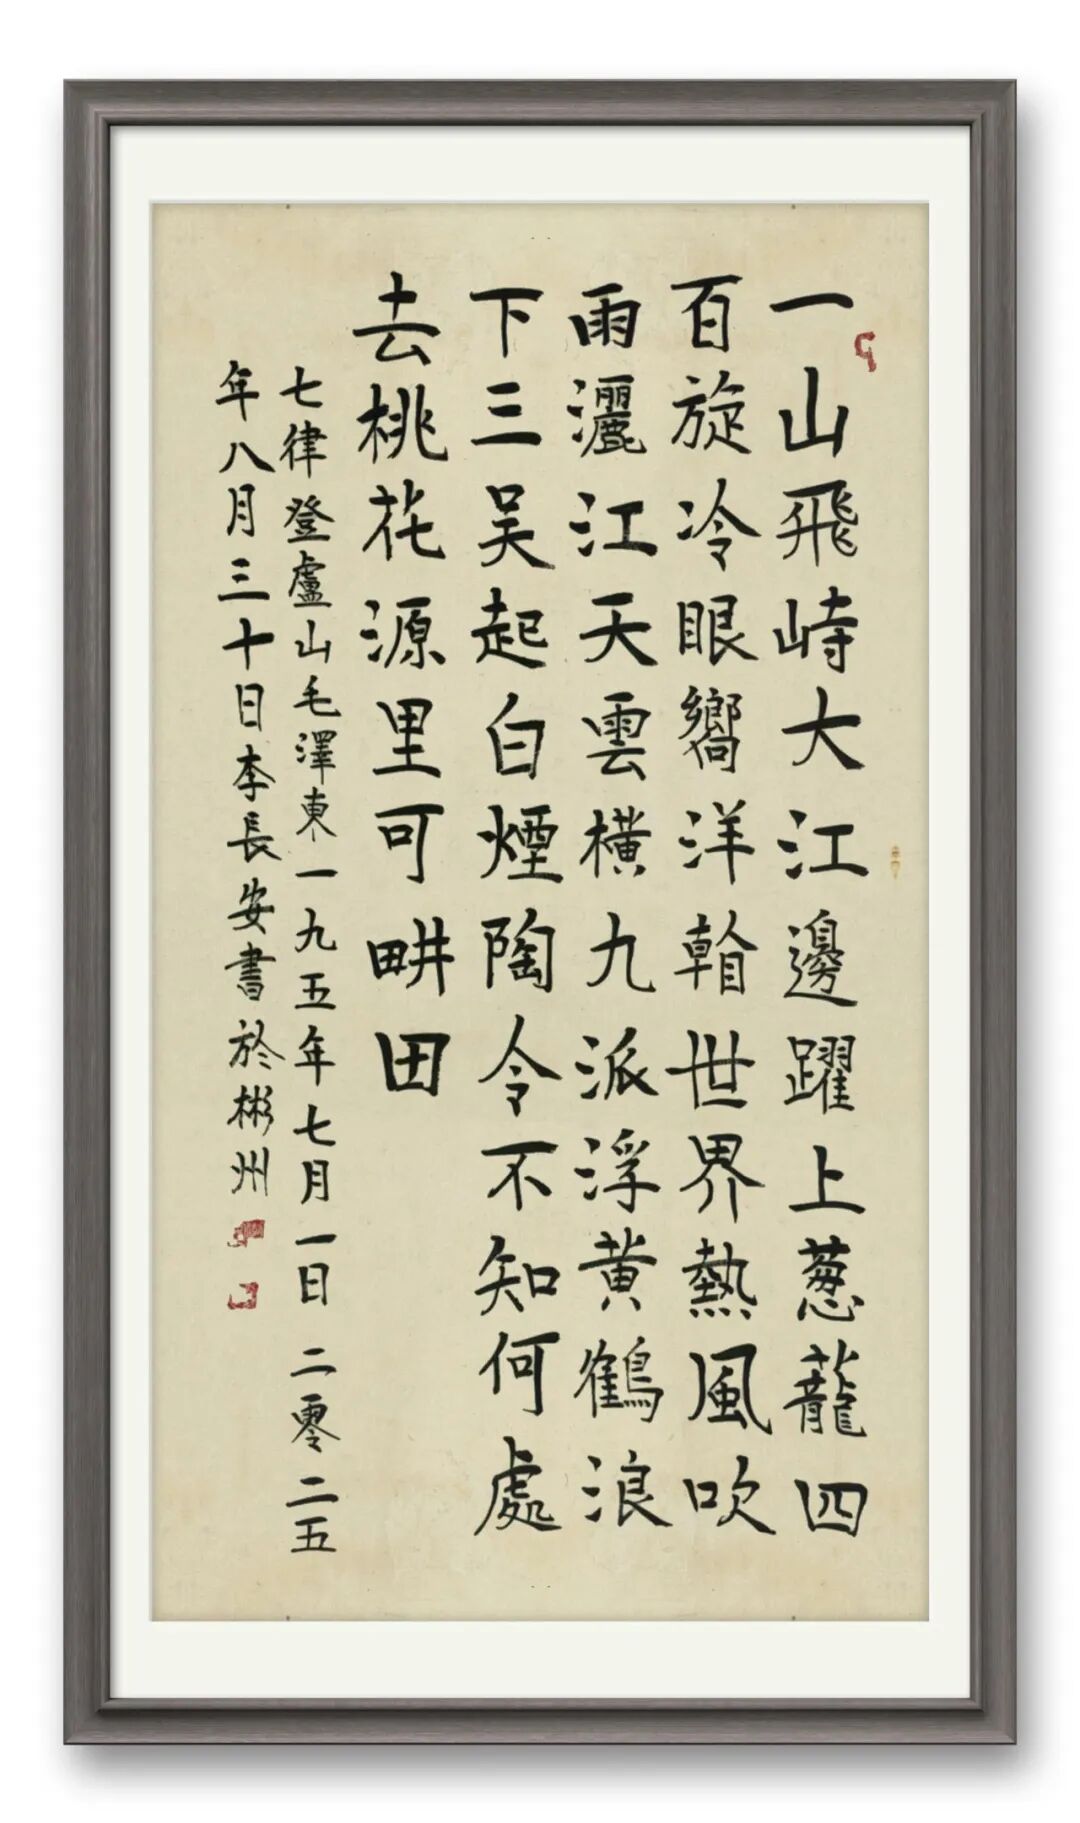 一山飛峙大江邊躍上葱蘢四
百旋冷眼嚮洋看世界熱風吹
雨灑江天雲橫九派浮黄鶴浪
下三吴起白煙陶令不知何處
去桃花源里可畊田
七律登盧山毛澤東一九五年七月一日 二零二五
年八月三十日李長安書於彬州